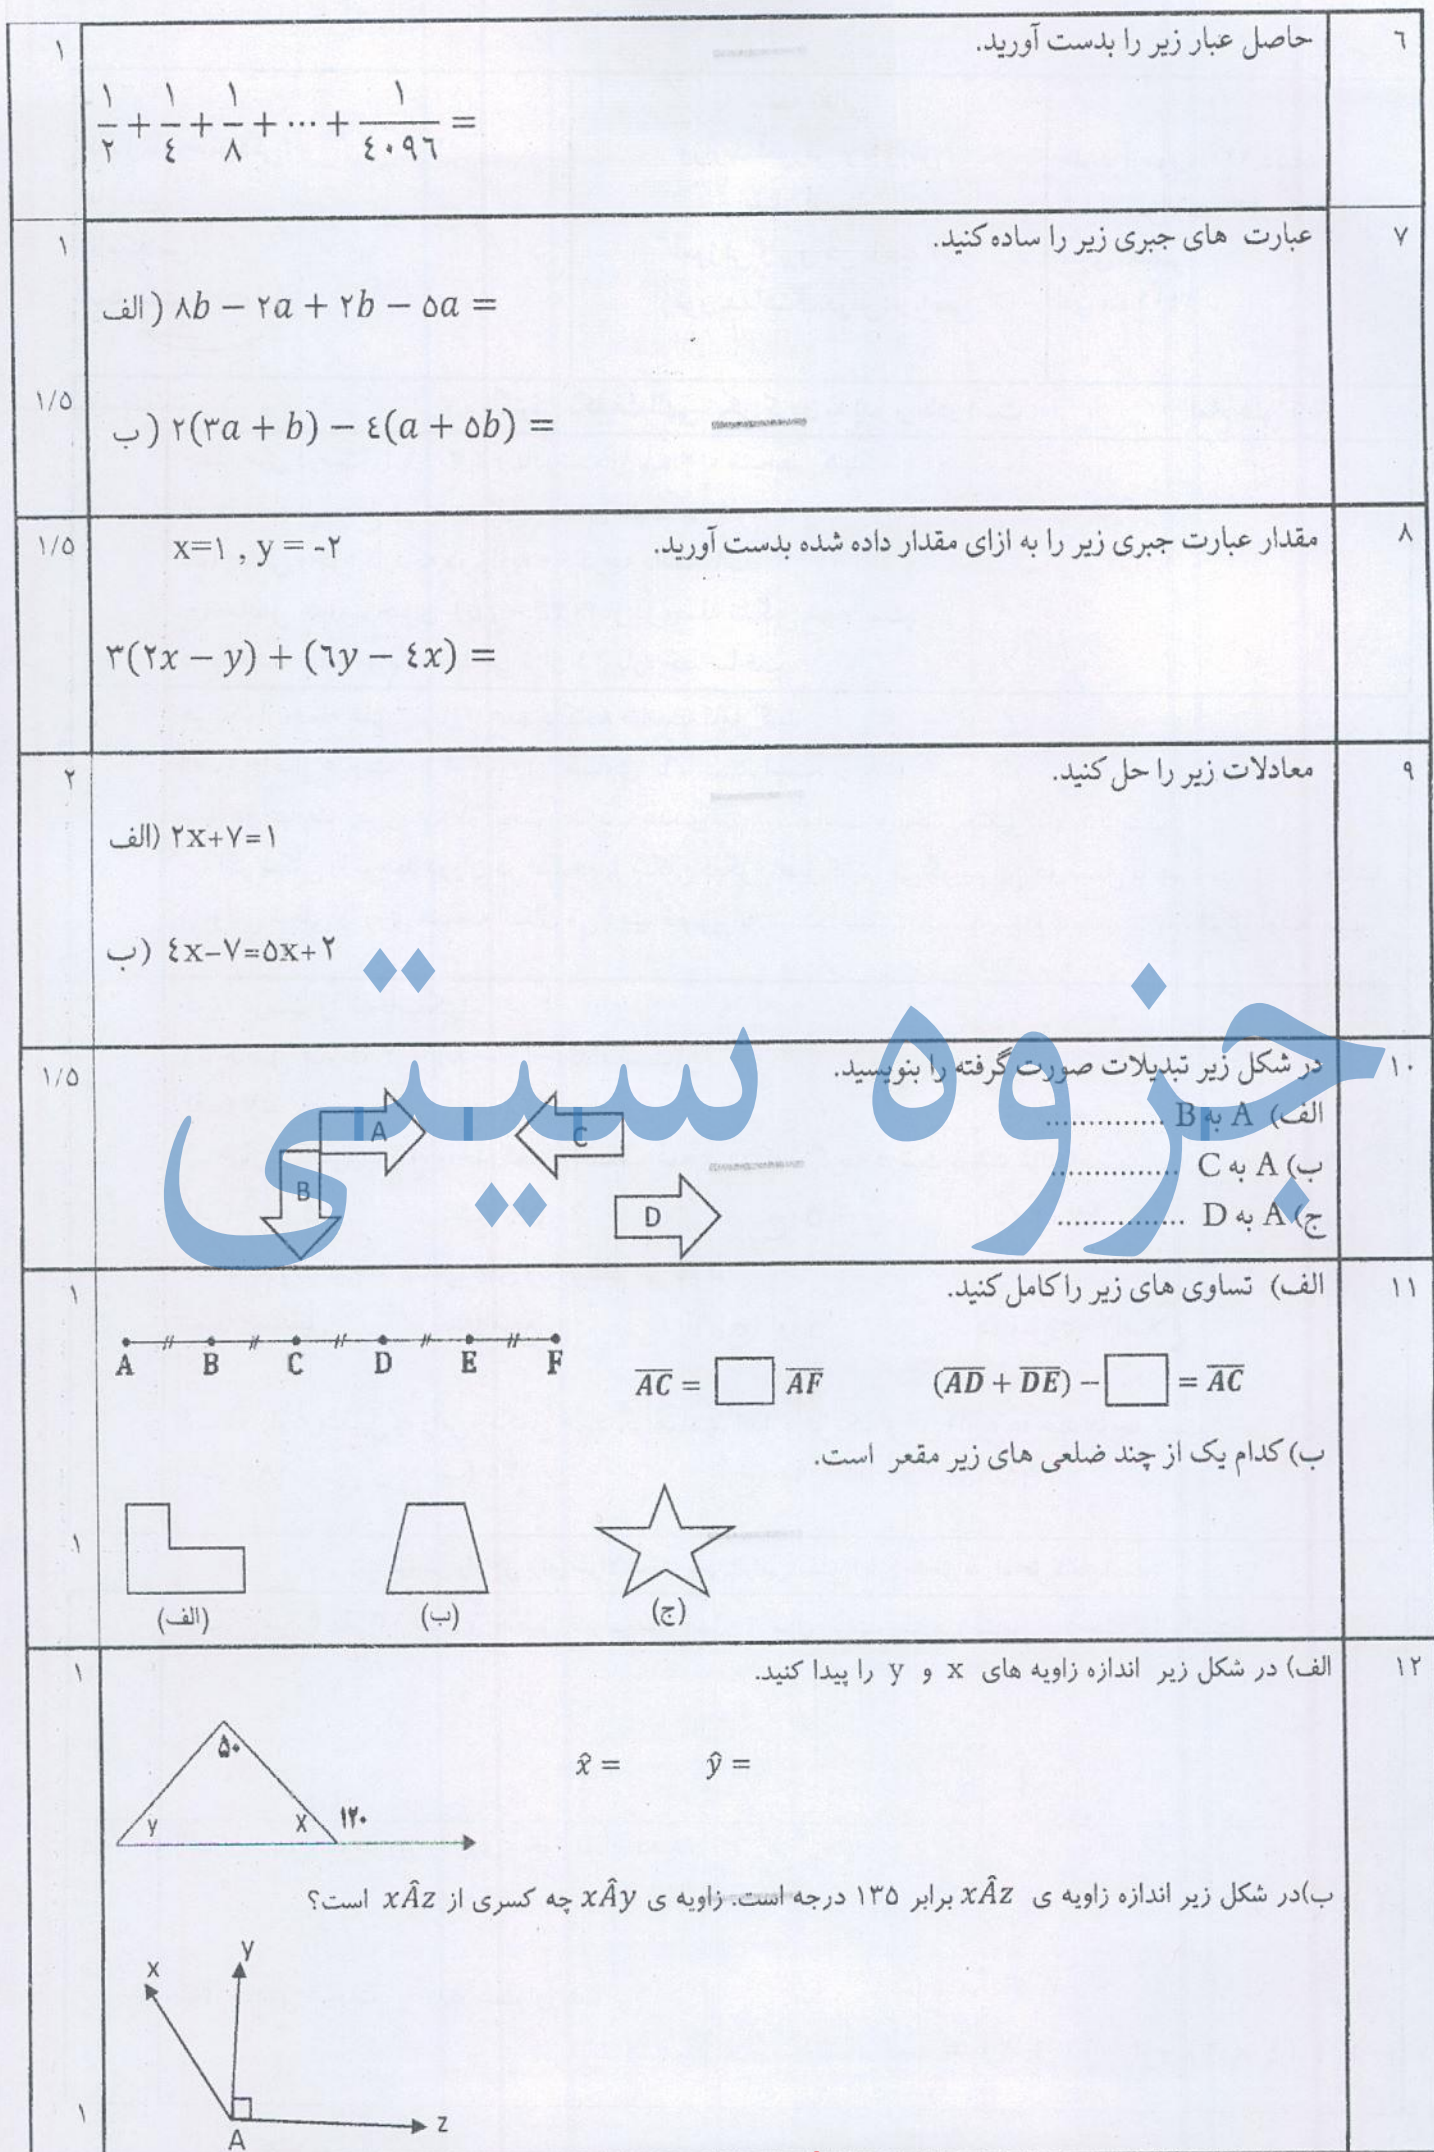 ٦ حاصل عبار زیر را بدست آورید. ۱
۱/۲ + ۱/٤ + ۱/۸ + ⋯ + ۱/٤۰۹٦ =
۷ عبارت های جبری زیر را ساده کنید. ۱
الف) ۸b − ۲a + ۲b − ۵a =
ب) ۲(۳a + b) − ٤(a + ۵b) = ۱/۵
۸ مقدار عبارت جبری زیر را به ازای مقدار داده شده بدست آورید. x=۱ , y = -۲ ۱/۵
۳(۲x − y) + (٦y − ٤x) =
۹ معادلات زیر را حل کنید. ۲
الف) ۲x+۷=۱
ب) ٤x−۷=۵x+۲
جزوه سیتی
۱۰ در شکل زیر تبدیلات صورت گرفته را بنویسید. ۱/۵
الف) A به B ..............
ب) A به C ...............
ج) A به D ...............
A
C
B
D
۱۱ الف) تساوی های زیر را کامل کنید. ۱
A B C D E F
A̅C̅ = □ A̅F̅ (A̅D̅ + D̅E̅) − □ = A̅C̅
ب) کدام یک از چند ضلعی های زیر مقعر است.
۱
(الف) (ب) (ج)
۱۲ الف) در شکل زیر اندازه زاویه های x و y را پیدا کنید. ۱
۵۰
x̂ = ŷ =
y x ۱۲۰
ب)در شکل زیر اندازه زاویه ی xÂz برابر ۱۳۵ درجه است. زاویه ی xÂy چه کسری از xÂz است؟
y
x
z
A
۱